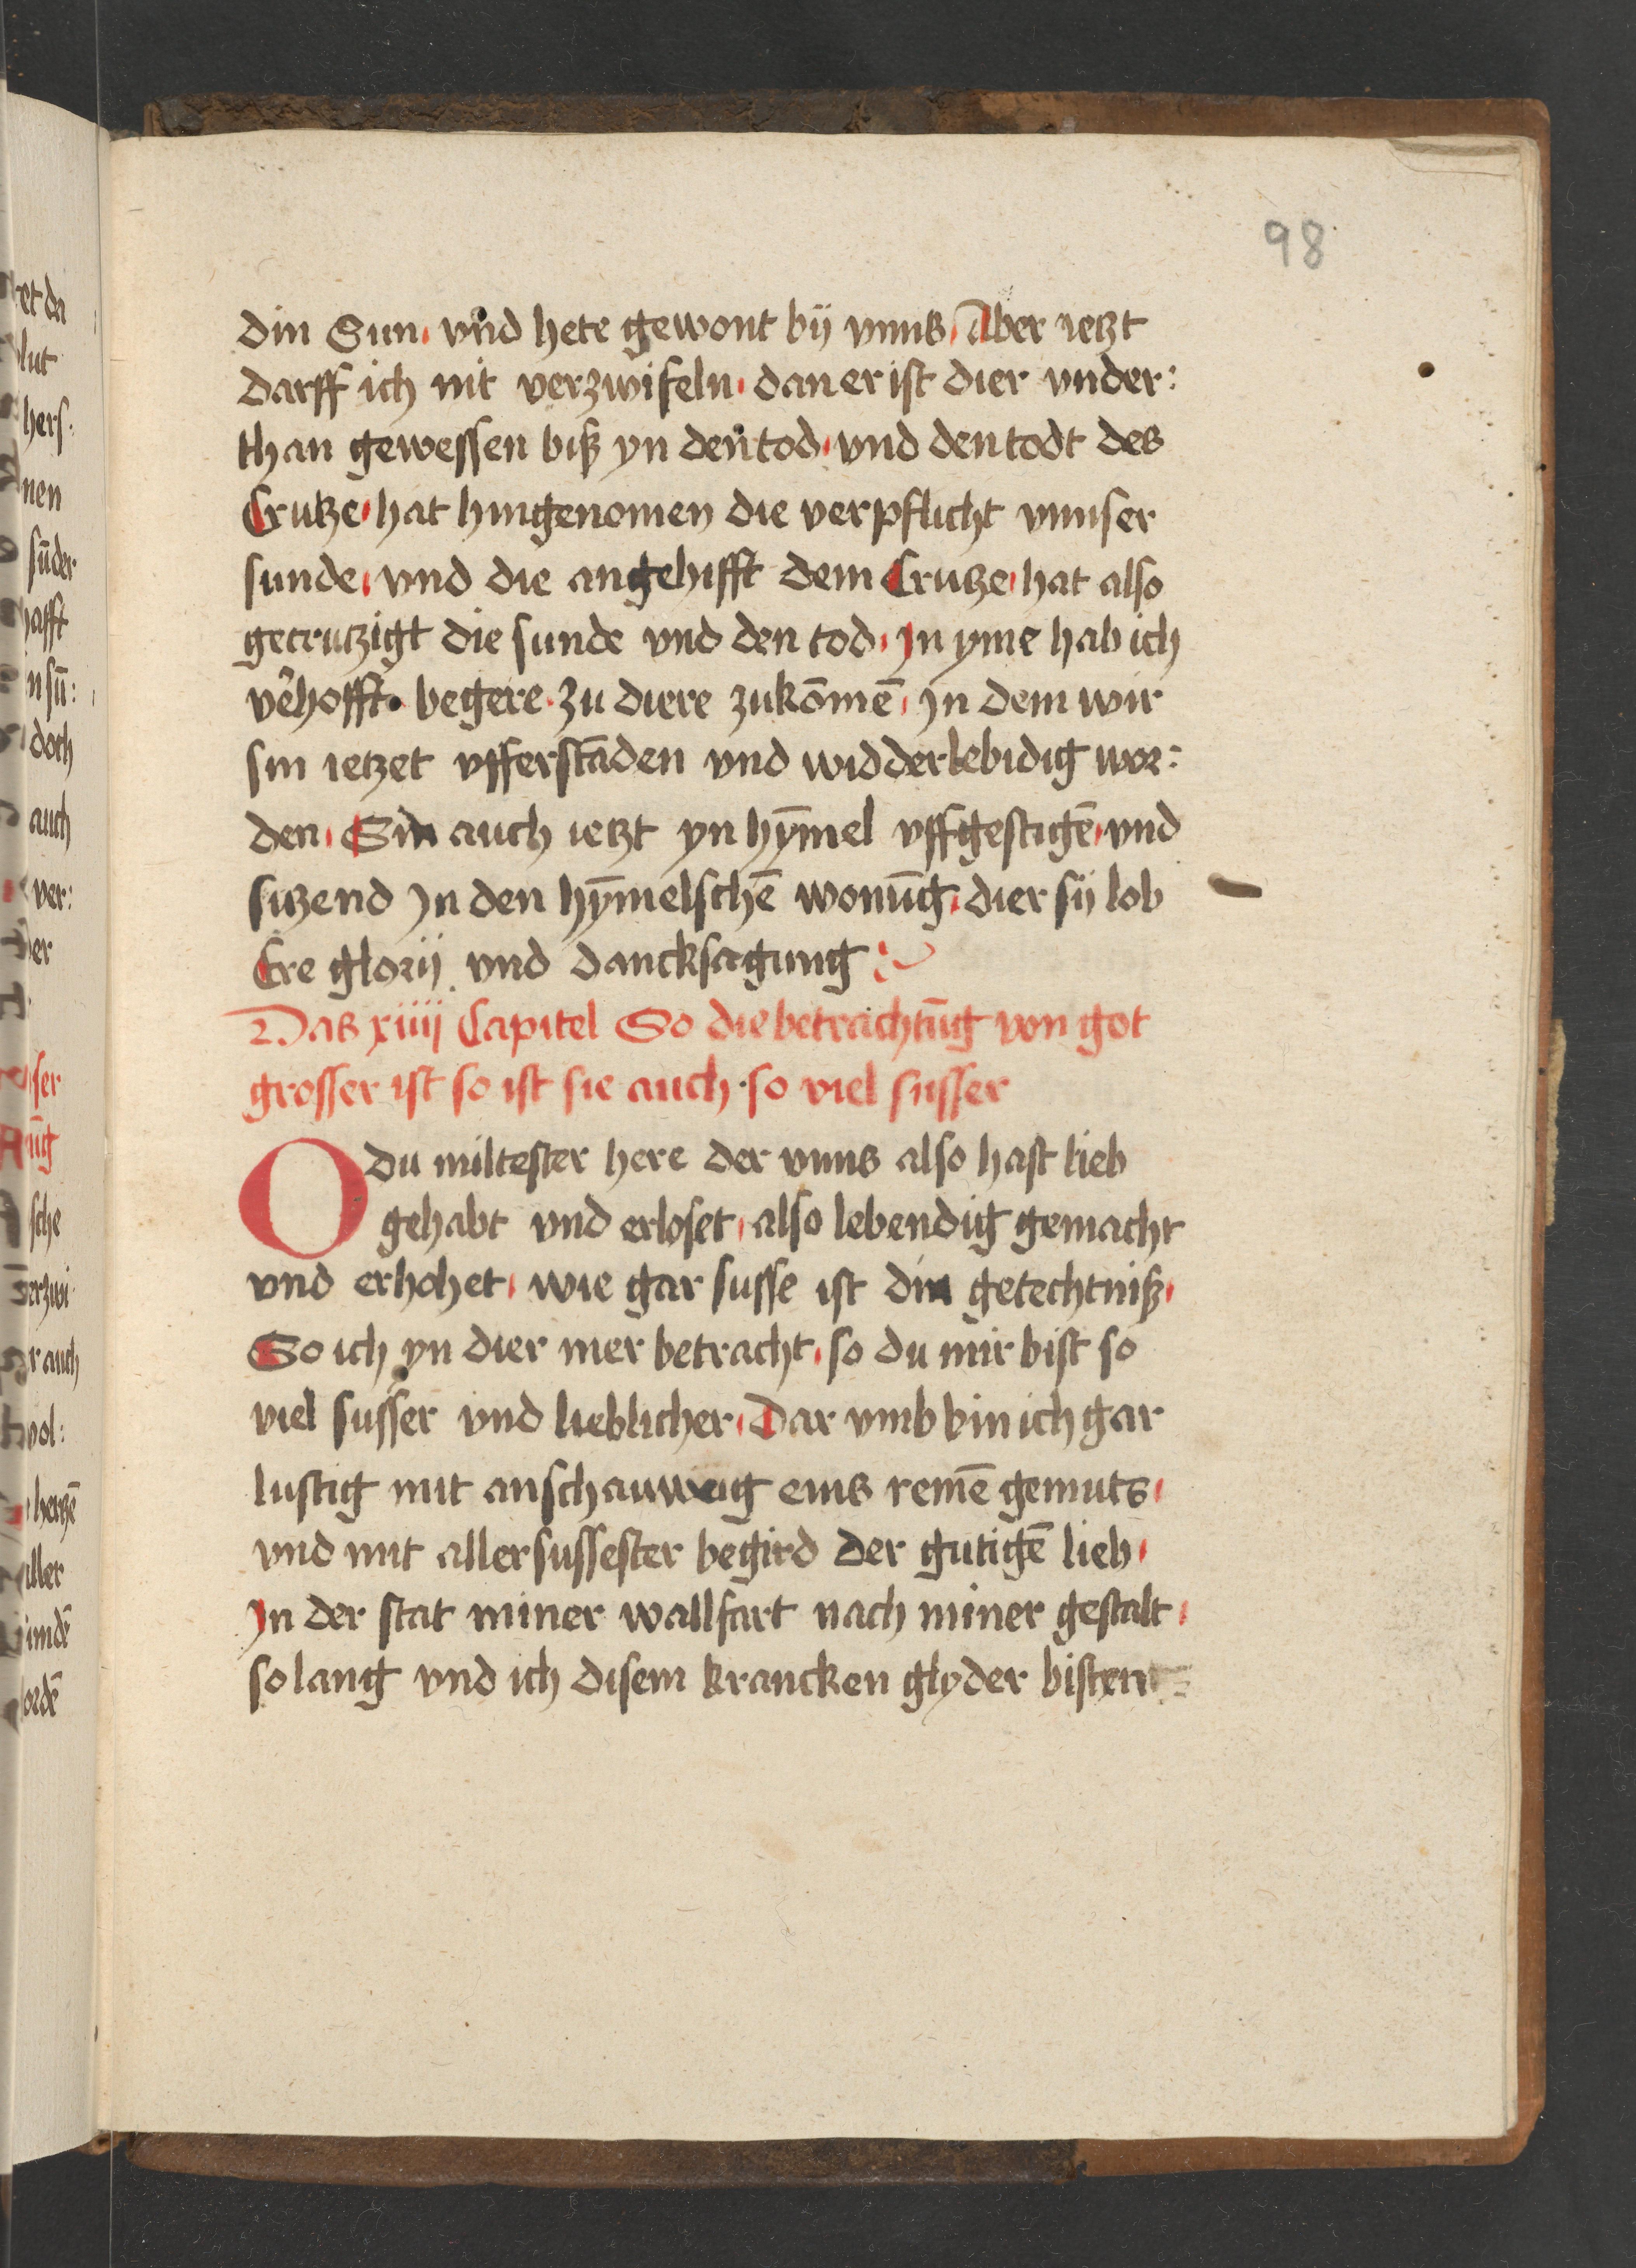 98
din Sun, vnd hete gewont bij vnns, Aber ietzt
darff ich nit verzwifeln, dan er ist dier vnder:
than gewessen biß yn den tod, vnd den todt des
Crutze, hat hingenomen die verpflicht vnnser
sunde, vnd die angehifft dem Crutze, hat also
gecrutzigt die sunde vnd den tod, Jn yme hab ich
v̄hofft. begere. zu diere zukōmē, Jn dem wir
sin ietzet vfferstāden vnd widderlebidig wor:
den, Sin auch ietzt yn hȳmel vffgestigē, vnd
sitzend Jn den hȳmelschē wonūg, dier sij lob
Ere glorij vnd dancksagung:
Das xiiij Capitel So die betrachtūg von got
grosser ist so ist sie auch. so viel susser
O du miltester here der vnns also hast lieb
gehabt vnd erloset, also lebendig gemacht
vnd erhohet, wie gar susse ist din getechtniß,
So ich yn dier mer betracht, so du mir bist so
viel susser vnd lieblicher, Dar vmb bin ich gar
lustig mit anschauwung eins reinē gemuts,
vnd mit allersussester begird der gutigē lieb,
Jn der stat miner wallfart nach miner gestalt,
so lang vnd ich disem krancken glyder